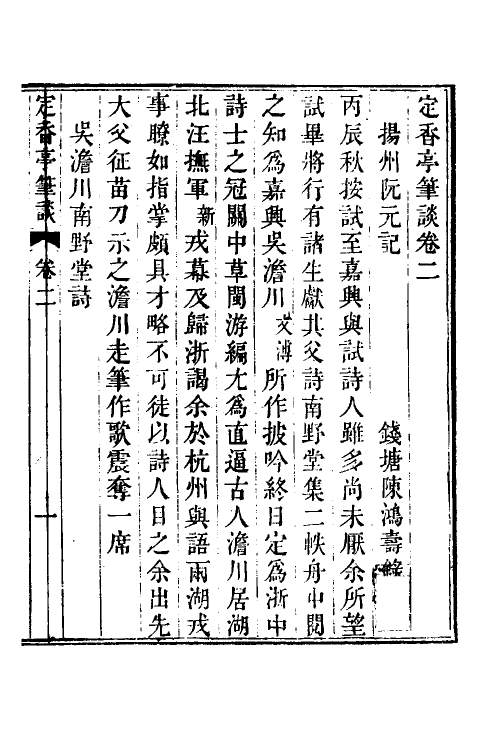 定香亭筆談卷二
揚州阮元記　錢塘陳鴻壽錄
丙辰秋按試至嘉興與試詩人雖多尚未厭余所望
試畢將行有諸生獻其父詩南野堂集二帙舟中閱
之知爲嘉興吳澹川文溥所作披吟終日定爲浙中
詩士之冠關中草閩游編尤爲直逼古人澹川居湖
北汪撫軍新戎幕及歸浙謁余於杭州與語兩湖戎
事瞭如指掌頗具才略不可徒以詩人目之余出先
大父征苗刀示之澹川走筆作歌震奪一席
吳澹川南野堂詩
定香亭筆談　卷二　一